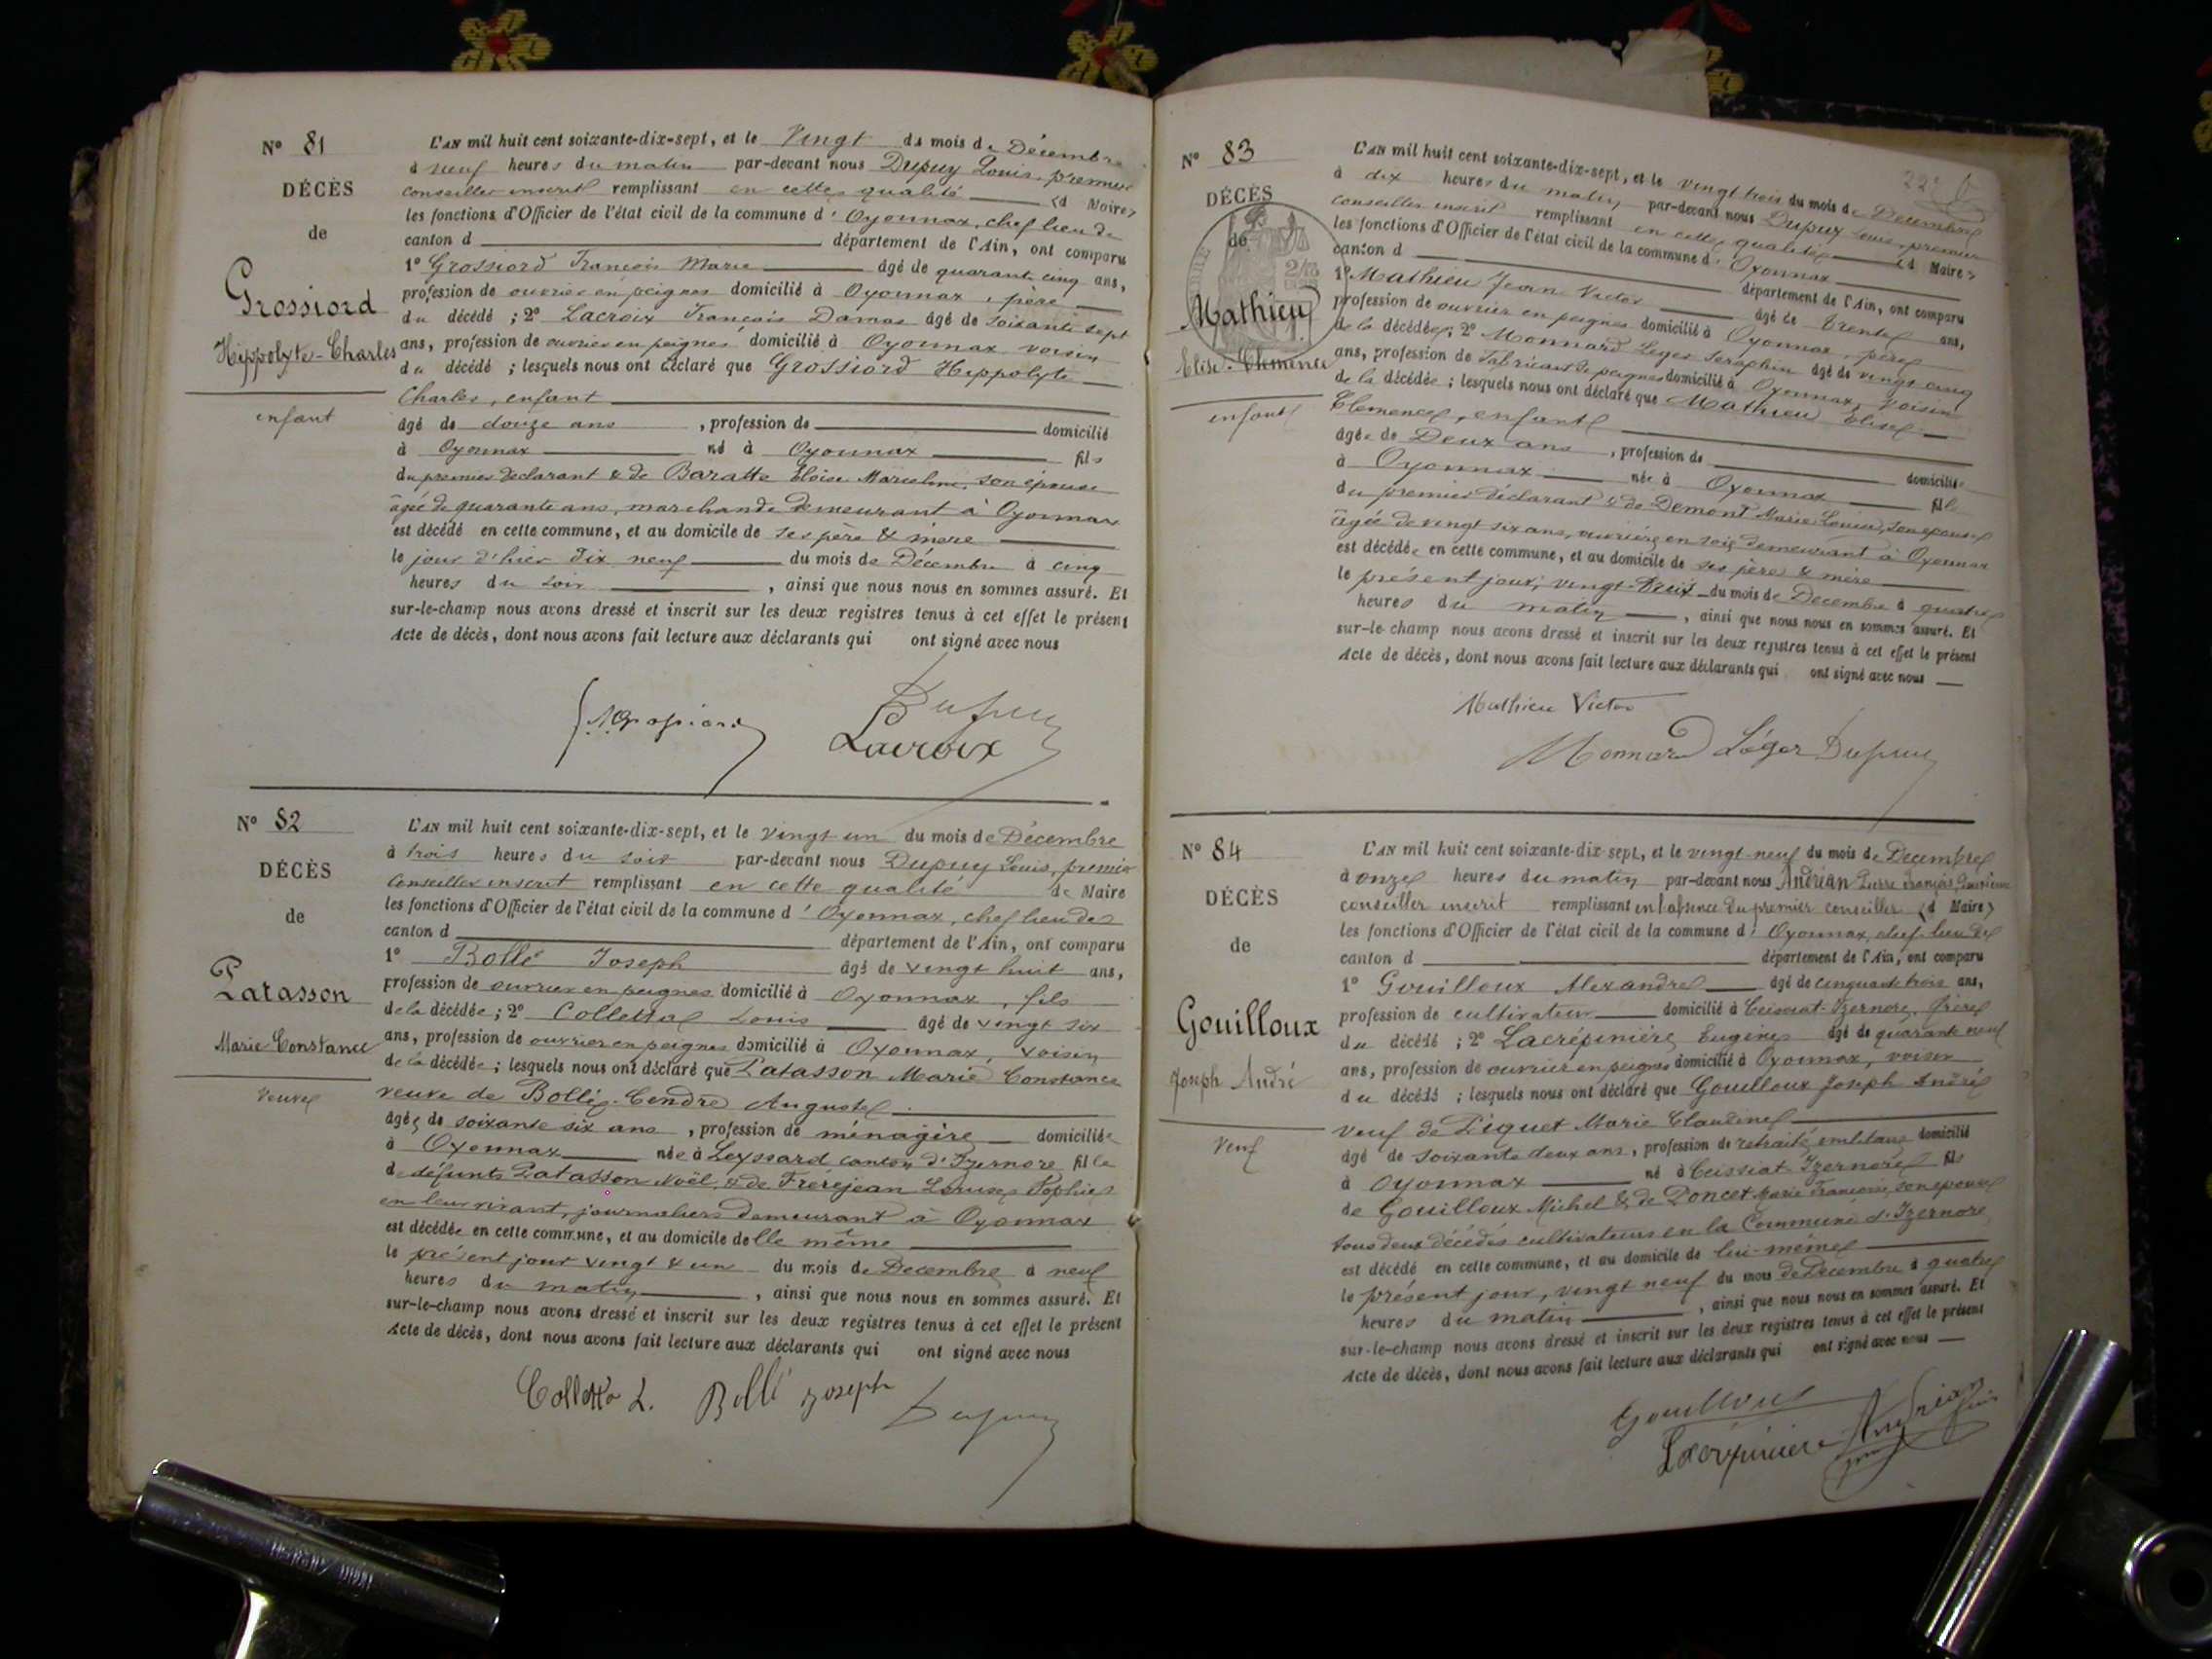 N° 81
DÉCÈS
de
Grossiord
Hippolyte-Charles
enfant
L'AN mil huit cent soixante-dix-sept, et le Vingt du mois de Décembre
à neuf heures du matin par-devant nous Dupuy Louis, premier
conseiller inscrit remplissant en cette qualité (d Maire)
les fonctions d'Officier de l'état civil de la commune d' Oyonnax, chef lieu de
canton d département de l'Ain, ont comparu
1° Grossiord François Marie âgé de quarante cinq ans,
profession de ouvrier en peignes domicilié à Oyonnax, père
du décédé ; 2° Lacroix François Damas âgé de soixante sept
ans, profession de ouvrier en peignes domicilié à Oyonnax voisin
du décédé ; lesquels nous ont déclaré que Grossiord Hippolyte
Charles, enfant
âgé de douze ans , profession de domicilié
à Oyonnax né à Oyonnax fils
du premier déclarant & de Baratte Eloise Marceline, son épouse
âgée de quarante ans, marchande demeurant à Oyonnax
est décédé en cette commune, et au domicile de ses père & mère
le jour d'hier dix neuf du mois de Décembre à cinq
heures du soir , ainsi que nous nous en sommes assuré. Et
sur-le-champ nous avons dressé et inscrit sur les deux registres tenus à cet effet le présent
Acte de décès, dont nous avons fait lecture aux déclarants qui ont signé avec nous
Dupuy
Lacroix
N° 82
DÉCÈS
de
Patasson
Marie Constance
veuve
L'AN mil huit cent soixante-dix-sept, et le vingt un du mois de Décembre
à trois heures du soir par-devant nous Dupuy Louis, premier
conseiller inscrit remplissant en cette qualité de Maire
les fonctions d'Officier de l'état civil de la commune d' Oyonnax, chef lieu de
canton d département de l'Ain, ont comparu
1° Bollé Joseph âgé de vingt huit ans,
profession de ouvrier en peignes domicilié à Oyonnax, fils
de la décédée ; 2° Colletta Louis âgé de vingt six
ans, profession de ouvrier en peignes domicilié à Oyonnax, voisin
de la décédée ; lesquels nous ont déclaré que Patasson Marie Constance
veuve de Bollé-Cendre Auguste
âgée de soixante six ans , profession de ménagère domiciliée
à Oyonnax née à Leyssard canton d'Izernore fille
de défunts Patasson Noël & de Frèrejean Sophie
en leur vivant, journaliers demeurant à Oyonnax
est décédée en cette commune, et au domicile delle même
le présent jour vingt & un du mois de Décembre à neuf
heures du matin , ainsi que nous nous en sommes assuré. Et
sur-le-champ nous avons dressé et inscrit sur les deux registres tenus à cet effet le présent
Acte de décès, dont nous avons fait lecture aux déclarants qui ont signé avec nous
Colletta L. Bollé Joseph
Dupuy
N° 83
DÉCÈS
de
Mathieu
Elise-Clemence
enfant
L'AN mil huit cent soixante-dix-sept, et le vingt trois du mois de Décembre
à dix heures du matin par-devant nous Dupuy Louis, premier
conseiller inscrit remplissant en cette qualité (d Maire)
les fonctions d'Officier de l'état civil de la commune d' Oyonnax
canton d département de l'Ain, ont comparu
1° Mathieu Jean Victor âgé de trente ans,
profession de ouvrier en peignes domicilié à Oyonnax, père
de la décédée ; 2° Monnard Leger Seraphin âgé de vingt cinq
ans, profession de fabricant de peignes domicilié à Oyonnax, voisin
de la décédée ; lesquels nous ont déclaré que Mathieu Elise
Clemence, enfant
âgée de Deux ans , profession de domiciliée
à Oyonnax née à Oyonnax fille
du premier déclarant & de Demont Marie Louise, son épouse
âgée de vingt six ans, ouvrière en soie demeurant à Oyonnax
est décédée en cette commune, et au domicile de ses père & mère
le présent jour, vingt-trois du mois de Décembre à quatre
heures du matin , ainsi que nous nous en sommes assuré. Et
sur-le-champ nous avons dressé et inscrit sur les deux registres tenus à cet effet le présent
Acte de décès, dont nous avons fait lecture aux déclarants qui ont signé avec nous
Mathieu Victor
Monnard Léger Dupuy
N° 84
DÉCÈS
de
Gouilloux
Joseph André
Veuf
L'AN mil huit cent soixante-dix-sept, et le vingt-neuf du mois de Décembre
à onze heures du matin par-devant nous Andrian Pierre François
conseiller inscrit remplissant en l'absence du premier conseiller (d Maire)
les fonctions d'Officier de l'état civil de la commune d' Oyonnax, chef lieu de
canton d département de l'Ain, ont comparu
1° Gouilloux Alexandre âgé de cinquante trois ans,
profession de cultivateur domicilié à Ceissiat-Izernore, frère
du décédé ; 2° Lacrépinière Eugène âgé de quarante neuf
ans, profession de ouvrier en peignes domicilié à Oyonnax, voisin
du décédé ; lesquels nous ont déclaré que Gouilloux Joseph André
veuf de Piquet Marie Claudine
âgé de soixante deux ans, profession de retraité militaire domicilié
à Oyonnax né à Ceissiat-Izernore fils
de Gouilloux Michel & de Poncet Marie Françoise, son épouse
tous deux décédés cultivateurs en la Commune d'Izernore
est décédé en cette commune, et au domicile de lui-même
le présent jour, vingt neuf du mois de Décembre à quatre
heures du matin , ainsi que nous nous en sommes assuré. Et
sur-le-champ nous avons dressé et inscrit sur les deux registres tenus à cet effet le présent
Acte de décès, dont nous avons fait lecture aux déclarants qui ont signé avec nous
Gouilloux
Lacrépinière Andrian